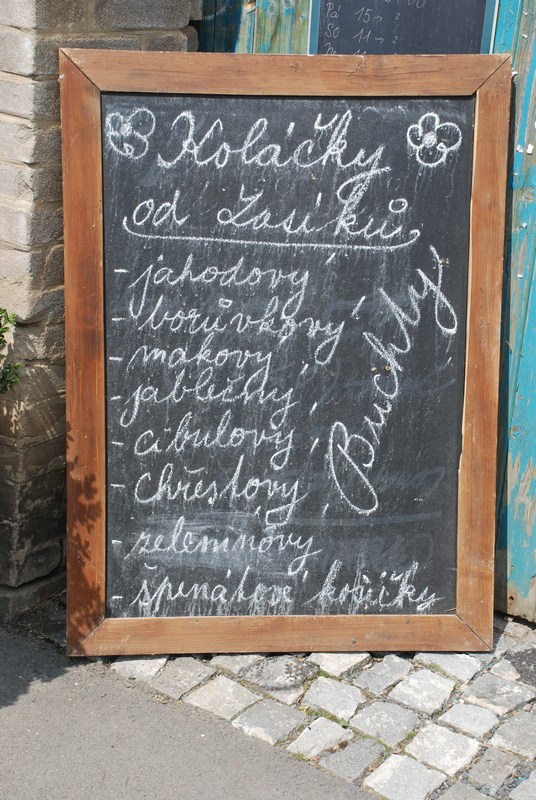 Pá 15 -
So 11 -
Koláčky
od Zasíků
- jahodový
- borůvkový,
- makový,
- jablečný,
- cibulový,
- chřestový,
- zeleninový
- špenátové košíčky
Buchty